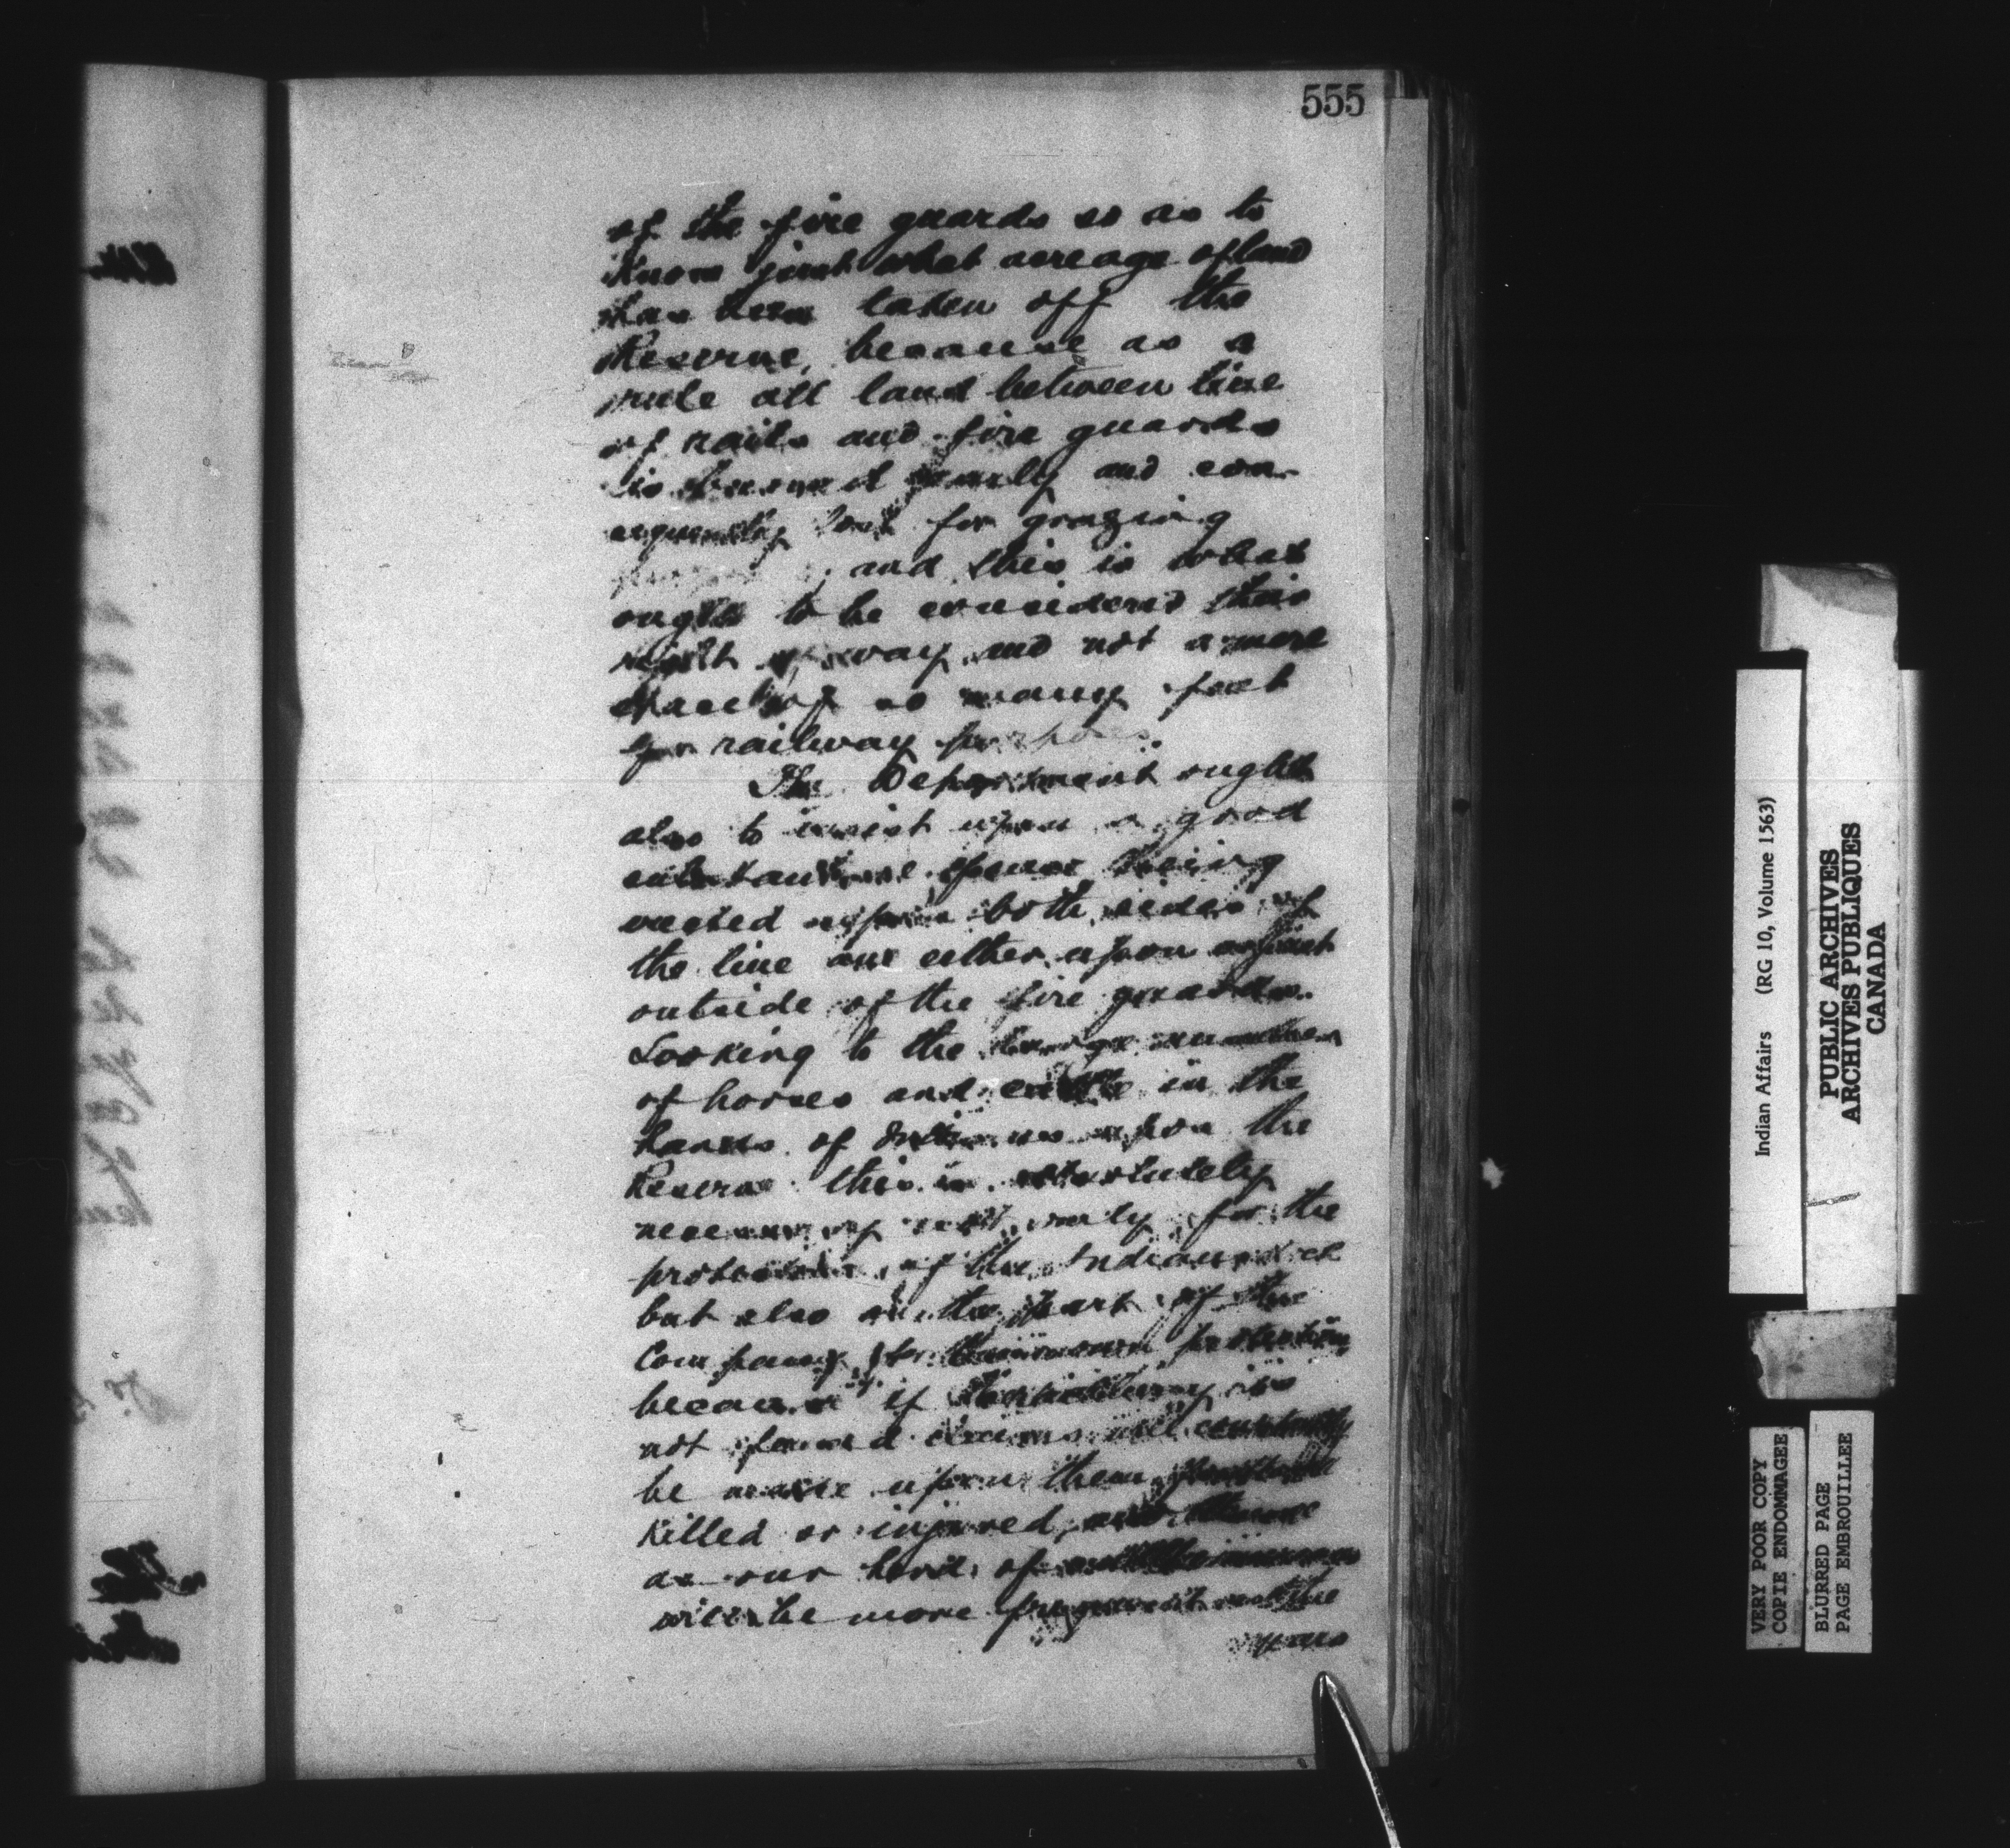 555
of the fire guards so as to
know just what acreage of land
has been taken off the
Reserve, because as a
rule all land between line
of rails and fire guards
is burned yearly and con-
sequently lost for grazing
and this is what
ought to be considered their
right of way and not a mere
of so many feet
for railway purposes
The Department ought
also to insist upon a good
substantial fence being
erected upon both sides of
the line and either upon or just
outside of the fire guards.
Looking to the large number
of horses and cattle in the
hands of Indians upon the
Reserve this is absolutely
necessary not only for the
protection of the Indians
but also on the part of the
Company for their own protection
because if is
not fenced claims will constantly
be made upon them for
killed or injured, and these
as our herd of
will be more frequent as the
years
Indian Affairs (RG 10, Volume 1563)
PUBLIC ARCHIVES
ARCHIVES PUBLIQUES
CANADA
VERY POOR COPY
COPIE ENDOMMAGEE
BLURRED PAGE
PAGE EMBROUILLEE